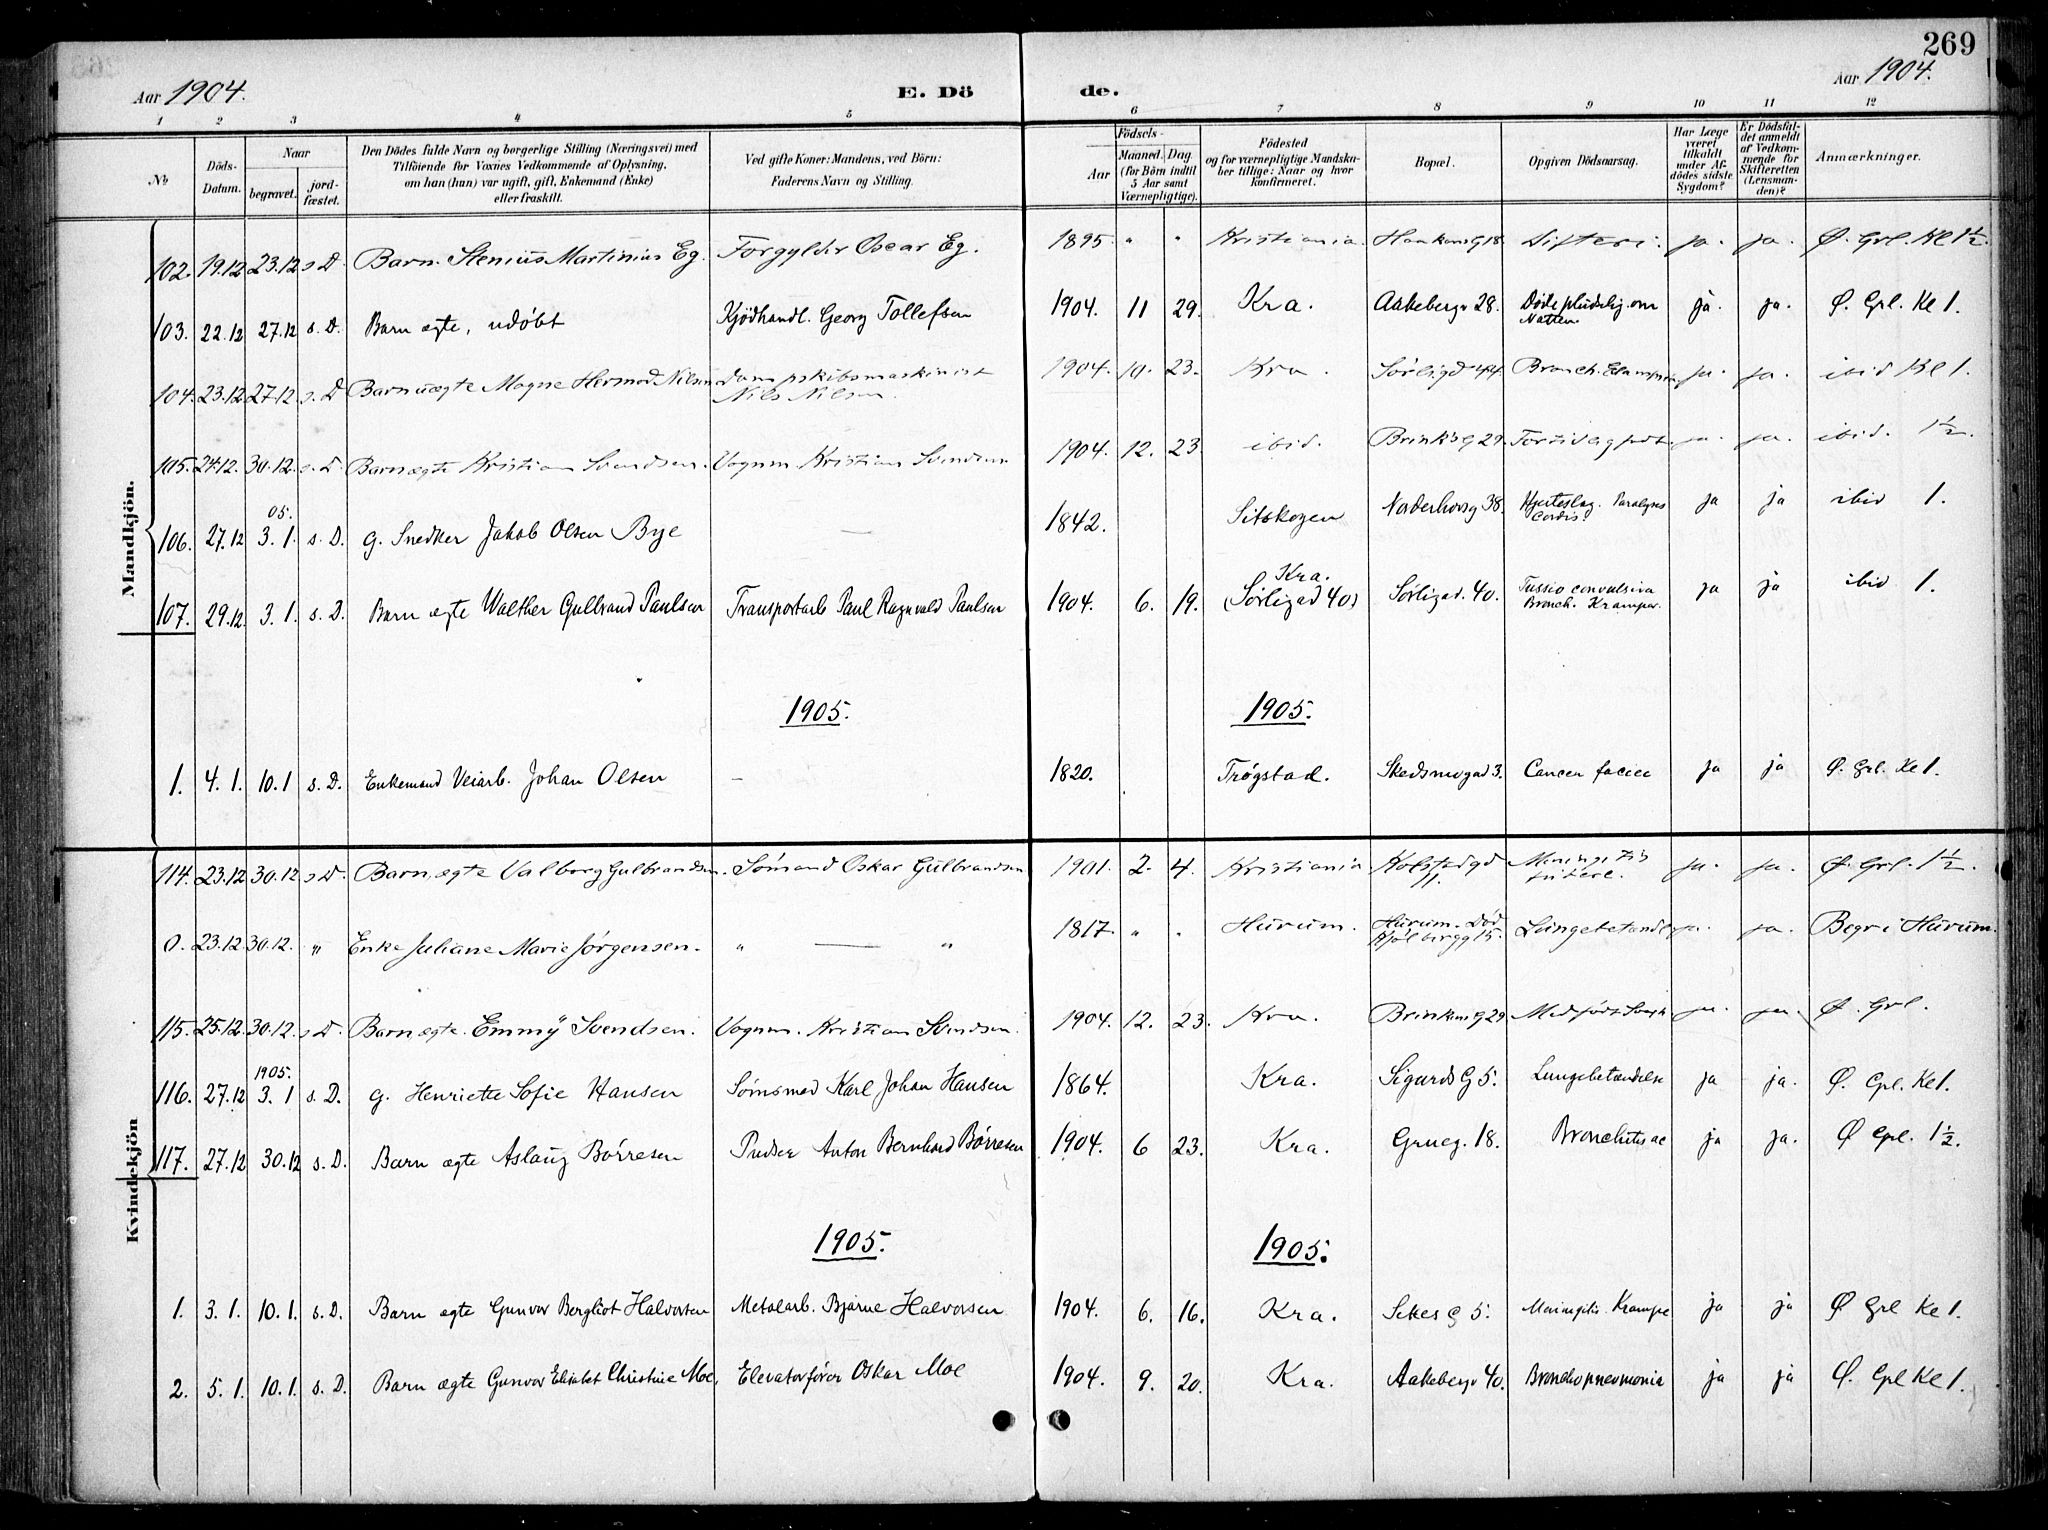 269
Aar 1904.
E. Dö de.
Aar 1904.
1 2 3 4 5 6 7 8 9 10 11 12
№
Döds-Datum.
Naar
begravet.
jord-fæstet.
Den Dödes fulde Navn og borgerlige Stilling (Næringsvei) med
Tilföiende for Voxnes Vedkommende af Oplysning,
om han (hun) var ugift, gift, Enkemand (Enke)
eller fraskilt.
Ved gifte Koner: Mandens, ved Börn:
Faderens Navn og Stilling.
Födsels-
Aar
Maaned. Dag
(for Börn indtil
5 Aar samt
Værnepligtige).
Födested
og for værnepligtige Mandska-
ber tillige: Naar og hvor
konfirmeret.
Bopæl.
Opgiven Dödsaarsag.
Har Læge
været
tilkaldt
under Af-
dödes sidste
Sygdom?
Er Dödsfal-
det anmeldt
af Vedkom-
mende for
Skifteretten
(Lensman-
den)?
Anmærkninger.
Mandkjön.
102. 19.12 23.12 s.D. Barn. Stenius Martinius Eg. Forgylder Oscar Eg. 1895 " " Kristiania. Haakonsg 18. Difteri. ja. ja. Ø. Grl. Kl 1½.
103. 22.12 27.12 s.D. Barn ægte, udøbt Kjødhandl. Georg Tollefsen 1904. 11 29. Kra. Aakebergv 28. Døde pludselig om Natten. ja. ja. Ø. Grl. Kl 1.
104. 23.12 27.12 s.D. Barn uægte Magne Hermod Nilsen Dampskibsmaskinist Nils Nilsen. 1904. 10. 23. Kra. Sørligd 44. Bronch. ja. ja. ibid Kl 1.
105. 24.12. 30.12. s.D. Barn ægte Kristian Svendsen. Vognm. Kristian Svendsen 1904. 12. 23 ibid. Brinksg 29. ja. ja. ibid. 1½.
106. 27.12 05. 3.1. s.D. g. Snedker Jakob Olsen Bye — 1842. Sitskogen Norderhovsg 38. Hjerteslag. Paralyses Cordis. ja ja ibid 1.
107. 29.12. 3.1. s.D. Barn ægte Walther Gulbrand Paulsen Transportarb Paul Ragnvald Paulsen 1904. 6. 19. Kra. (Sørligad 40) Sørligad. 40. Tussio convulsiva Bronch. Kramper. ja ja ibid 1.
1905. 1905.
1. 4.1. 10.1 s.D. Enkemand Veiarb. Johan Olsen — 1820. Trøgstad. Skedsmogad 3. Cancer faciei ja ja Ø. Grl. Kl 1.
Kvindekjön
114. 23.12 30.12 s.D. Barn ægte Valborg Gulbrandsen. Sømand Oskar Gulbrandsen 1901. 2. 4. Kristiania Kolstadgd 11. Miningitis tuberc. ja. ja. Ø. Grl. 1½.
0. 23.12 30.12. " Enke Juliane Marie Jørgensen. " — " 1817. " " Hurum. Hurum. Død Hjølbergg 15. Lungebetændelse ja. ja. Begr i Hurum.
115. 25.12. 30.12. s.D. Barn ægte. Emmy Svendsen. Vognm. Kristian Svendsen. 1904. 12. 23. Kra. Brinkensg 29. Medfødt Svagh ja. ja. Ø. Grl.
116. 27.12 1905. 3.1 s.D. g. Henriette Sofie Hansen Sømsmed Karl Johan Hansen 1864. Kra. Sigurdsg 5. Lungebetændelse ja ja. Ø. Grl. Kl 1.
117. 27.12 30.12 s.D. Barn ægte Aslaug Børresen Pudser Anton Bernhard Børresen 1904. 6 23. Kra. Grueg. 18. Bronchitis ac ja ja. Ø Grl. 1½.
1905. 1905.
1. 3.1. 10.1. s.D. Barn ægte Gunvor Bergliot Halvorsen Metalarb. Bjarne Halvorsen 1904. 6. 16. Kra. G 5. Meningitis. Krampe ja ja Ø Grl Kl 1.
2. 5.1. 10.1. s.D. Barn ægte Gunvor Elisabet Christine Moe. Elevatorfører Oskar Moe 1904. 9. 20. Kra. Aakebergv 40. Bronchopneumonia ja ja Ø. Grl Kl 1.